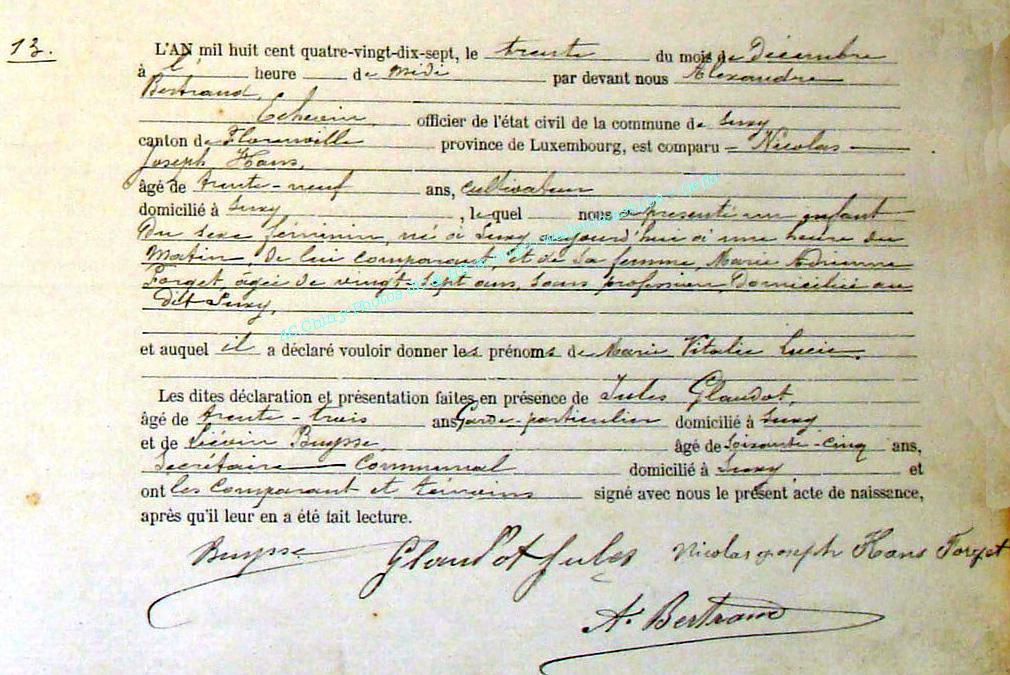 13.
L'AN mil huit cent quatre-vingt-dix-sept, le trente du mois de Décembre
à l' heure de midi par devant nous Alexandre
Bertrand,
Echevin officier de l'état civil de la commune de Suxy
canton de Florenville province de Luxembourg, est comparu Nicolas
Joseph Hans,
âgé de trente-neuf ans, cultivateur
domicilié à Suxy, lequel nous a présenté un enfant
du sexe féminin, né à Suxy, aujourd'hui à une heure du
matin, de lui comparant, et de sa femme, Marie Adrienne
Forget, âgée de vingt-sept ans, sans profession, domiciliée au
dit Suxy,
et auquel il a déclaré vouloir donner les prénoms de Marie Vitalie Lucie.
Les dites déclaration et présentation faites en présence de Jules Glaudot,
âgé de trente-trois ans Garde-particulier domicilié à Suxy
et de Liévin Buysse, âgé de soixante-cinq ans,
Secrétaire Communal domicilié à Suxy et
ont les comparant et témoins signé avec nous le présent acte de naissance,
après qu'il leur en a été fait lecture.
Buysse Glaudot Jules Nicolas joseph Hans Forget
A. Bertrand
AC Chiny Photos